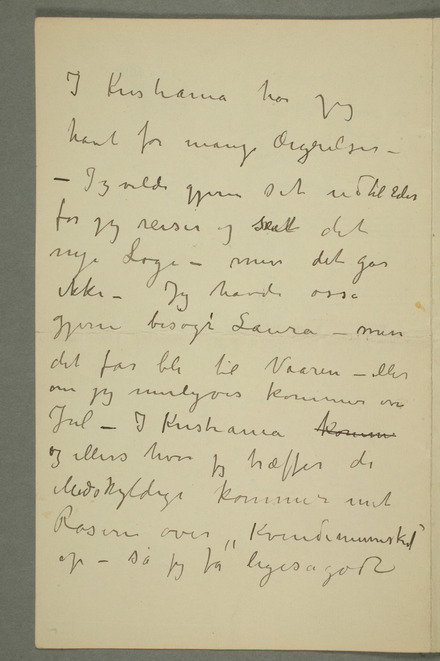 I Kristiania har jeg
havt for mange Ærgrelser –
– Jeg vilde gjerne set ud til Eder
før jeg reiser og seet det
nye Loge – men det går
ikke – Jeg havde osså
gjerne besøgt Laura – men
det får bli til Vaaren – eller
om jeg muligvis kommer om
Jul – I Kristiania komm
og ellers hvor jeg træffer de
Medskyldige kommer mit
Raseri over „Kvindemennsket"
op – så jeg får ligesågodt